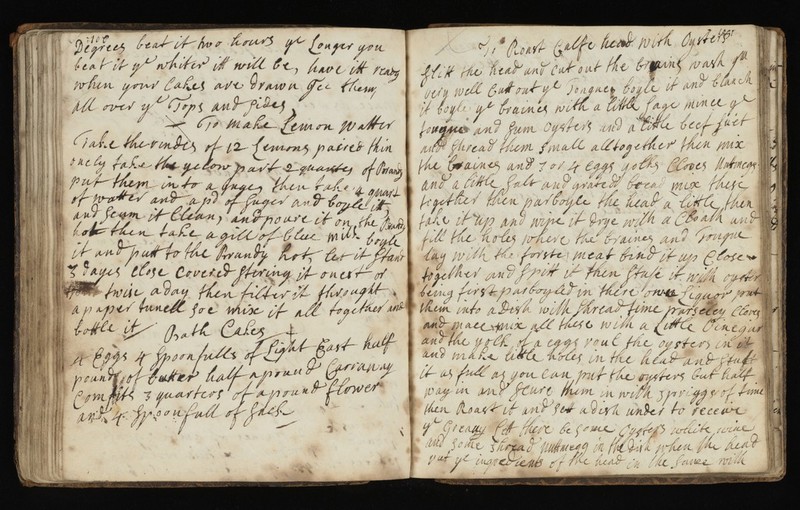 Degrees beat it two houres ye Longer you
beat it ye whiter itt will be, have itt ready
when your Cakes are drawn Jce them,
all over ye Tops and Sides
To make Lemon Watter
Take the rindes of 12 Lemons paired thin
onely take the yelow part 2 quartes of Brandy
put them into a Juge, then take a quart
of watter and a pd of Suger and boyle itt
and Scum it Clean, and poure it on the Brandy
hott then take a gill of blue milk boyle
it and putt to the Brandy hot, let it Stand
3 dayes Close Covered Stiring it onest or
twise a day then filter it throught
a paper tunell Soe mix it all together and
bottle it
Bath Cakes
4 Eggs 4 Spoonfulls of Light East half
pound of butter half a pound Carranny
Comfits 3 quarters of a pound flower
and 4 Spoonfull of Sack
To Roast Calfe head with Oysters
Slitt the head and Cut out the braines wash ym
very well Cutt out ye Tongue, boyle it and blanch
it boyle ye braines with a little Sage mince ye
tongue and Sum oysters and a little beef Suet
and Shread them Small alltogether then mix
the braines and 3 or 4 eggs yolks Cloves Nutmegg
and a little Salt and grated bread mix these
together then parboyle the head a little then
take it up and wipe it drye with a Cloath and
fill the holes where the braines and Tongue
lay with the forste meat bind it up Close
together and Spitt it then Stufe it with oyster
being first parboyled in there owne Liquor putt
them into a desh with Shread time parsceley Cloves
and mace mix all these with a Little Vinegar
and the yolk of a eggs roul the oysters in it
and make little holes in the head and Stuff
it as full as you Can putt the oysters but half
way in and Scure them in with Spriggs of time
then Roast it and Set a desh under to receive
ye Greauy lett there be some Oysters white wine
and Some Shread Nuttmegg in the dish when the head
put ye ingredients of the head in the Sauce with